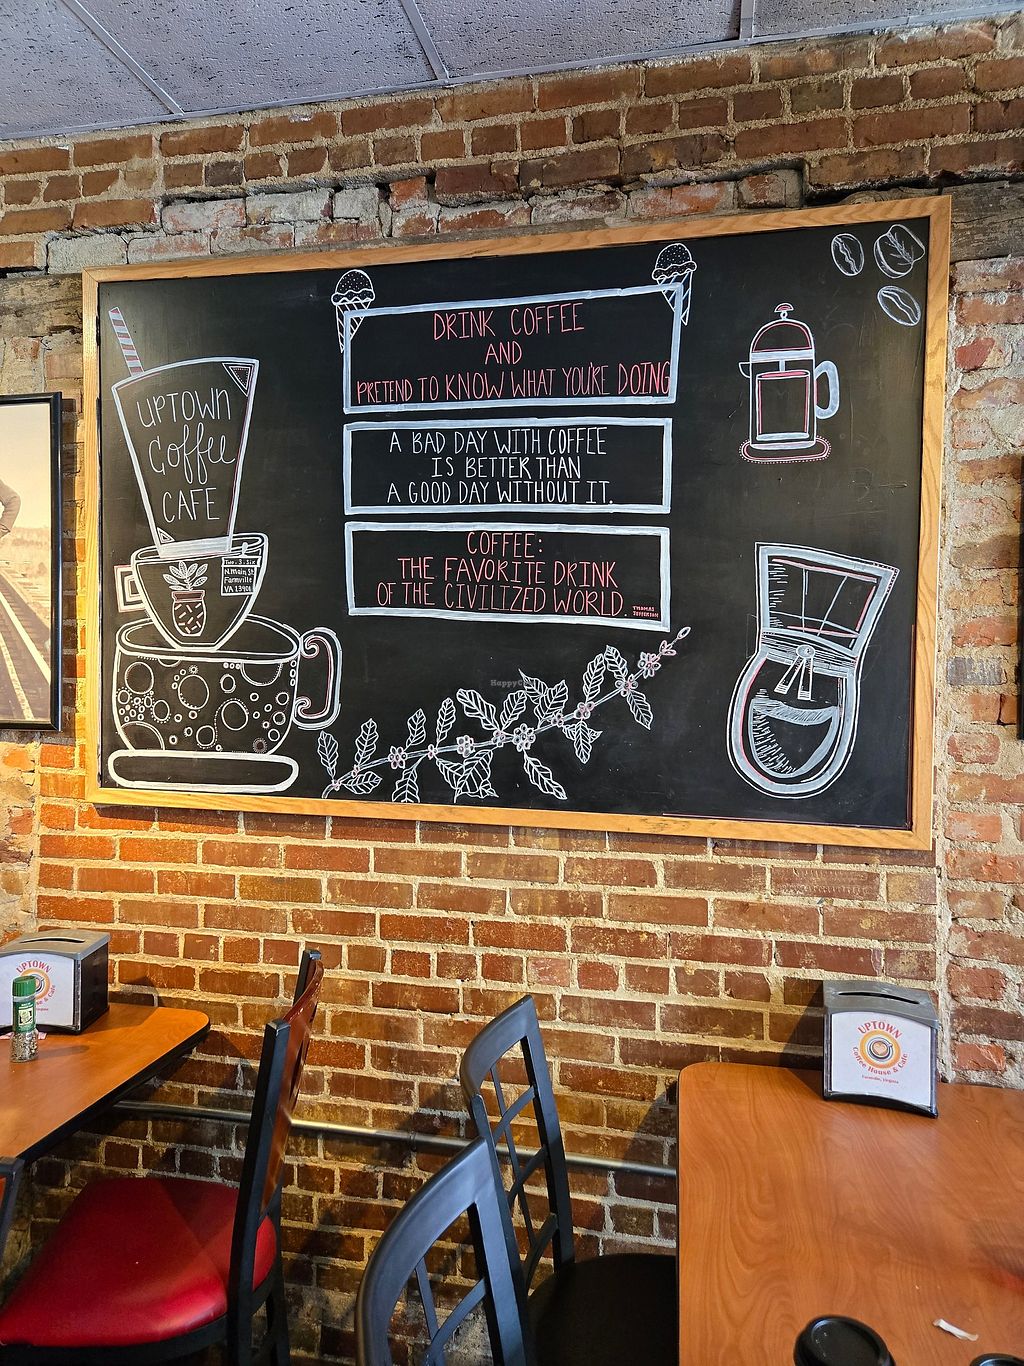 DRINK COFFEE
AND
PRETEND TO KNOW WHAT YOU'RE DOING
A BAD DAY WITH COFFEE
IS BETTER THAN
A GOOD DAY WITHOUT IT.
COFFEE:
THE FAVORITE DRINK
OF THE CIVILIZED WORLD.
THOMAS
JEFFERSON
UPTOWN
Coffee
CAFE
Two.3.Six
N.Main St
Farmville
VA 13901
HappyCow
UPTOWN
UPTOWN
Coffee House & Cafe
Farmville, Virginia